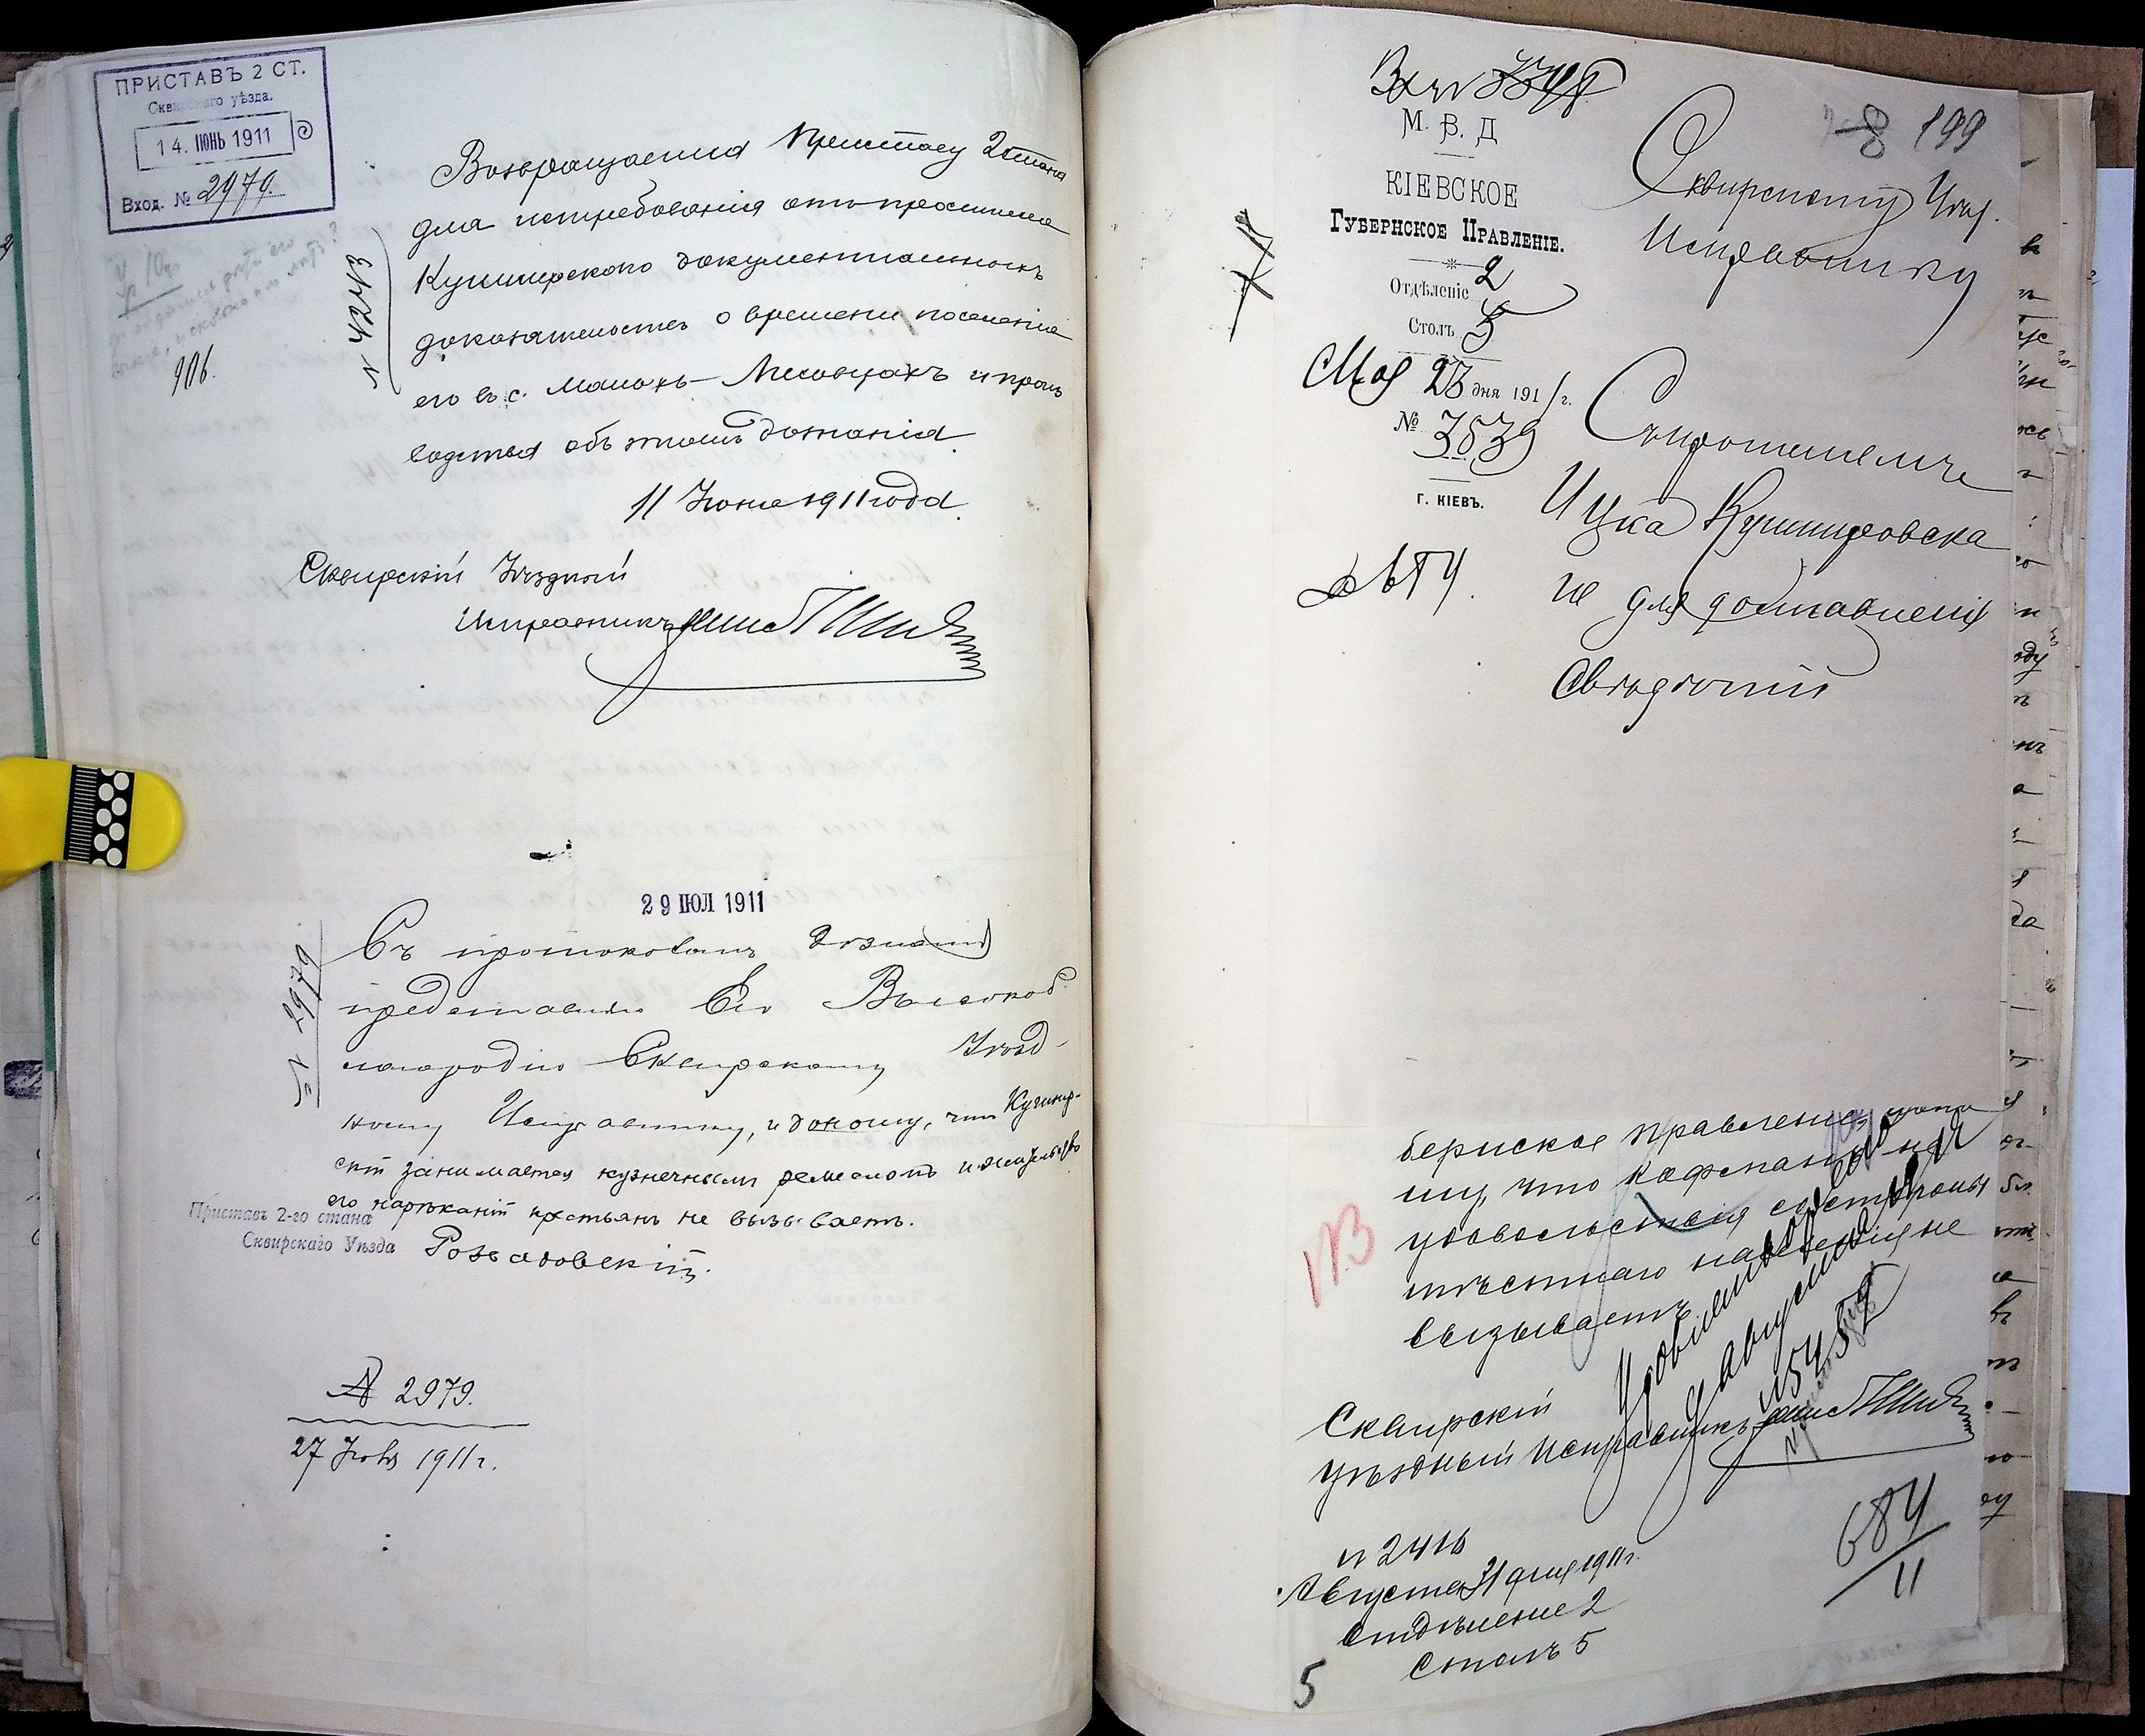 ПРИСТАВЪ 2 СТ.
Сквирскаго уѣзда.
14. ІЮНЬ 1911
Вход. № 2979.
906.
№ 4243
Возвращается Приставу 2 стана
для истребованія отъ просителя
Кушнирскаго документальныхъ
доказательствъ о времени поселенія
его въ с. Малыхъ-Лисовцахъ и произ
водства объ этомъ дознанія
11 Іюня 1911 года
Сквирскій Уѣздный
Исправникъ
29 ІЮЛ 1911
№ 2979
Съ протоколомъ дознанія
представляю Его Высокоб
лагородію Сквирскому Уѣзд-
ному Исправнику, и доношу, что Кушнир-
скій занимается кузнечнымъ ремесломъ и жительство
его нарѣканій крестьянъ не вызываетъ.
Приставъ 2-го стана
Сквирскаго Уѣзда
№ 2979.
27 1911 г.
Вх №
М. В. Д
КІЕВСКОЕ
ГУБЕРНСКОЕ ПРАВЛЕНІЕ.
Отдѣленіе 2
Столъ 5
Мая 23 дня 1911 г.
№ 3539
Г. КІЕВЪ.
8 199
Сквирскому Уѣзд.
Исправнику
Съ прошеніемъ
Ицка Кушнировска
го для доставленія
свѣдѣній
№3
бернское правленіе,
шу, что Кофманъ не
удовольствія со стороны
мѣстнаго населенія не
вызываетъ
Сквирскій
уѣздный Исправникъ
№ 2416
Августа 31 дня 1911 г.
отдѣленіе 2
столъ 5
684
11
5